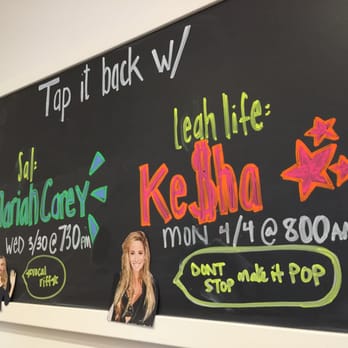 Tap it back w/
Sal:
Mariah Carey
WED 3/30 @ 730PM
leah life:
Ke$ha
MON 4/4 @ 800AM
DONT
STOP make it POP